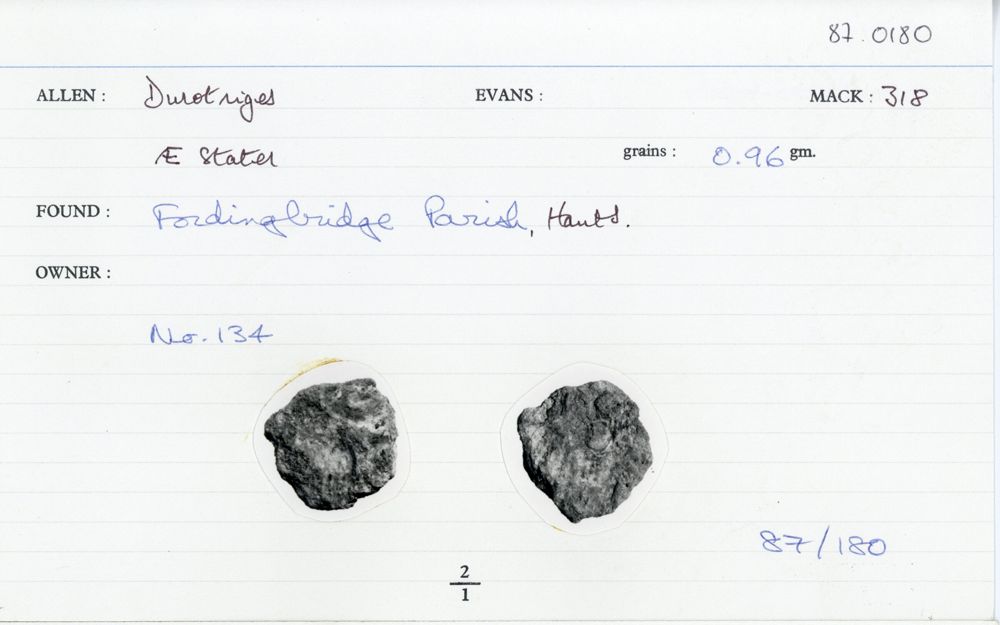 87.0180
ALLEN : Durotriges EVANS : MACK : 318
Æ Stater grains : 0.96 gm.
FOUND : Fordingbridge Parish, Hants.
OWNER :
No. 134
87/180
2
1